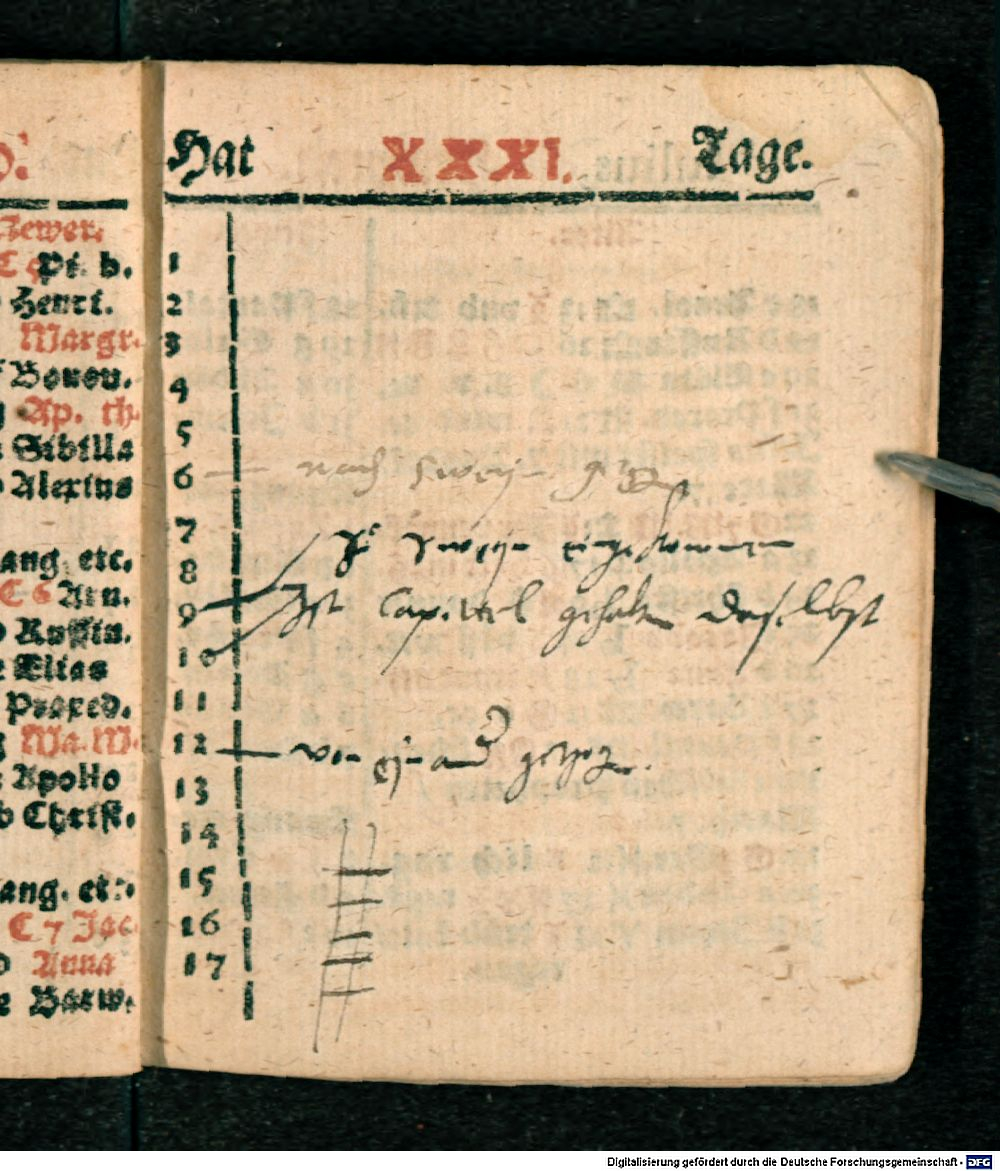 Hat XXXI. Tage.
Newer.
Pi. b. 1
Henri. 2
Margr. 3
Bonav. 4
Ap. th. 5
Sibilla 6
Alexius
nach
7
ang. etc.
8
C 6 Arn.
eingekommen
9
Ruffin.
Ist Capittel gehalten daselbst
10
Elias
11
Praxed.
12
Ma. Ma.
von einand gezogen.
13
Apollo
14
b Christ.
15
ang. etc.
16
C 7 Jac.
17
Anna
Digitalisierung gefördert durch die Deutsche Forschungsgemeinschaft - DFG